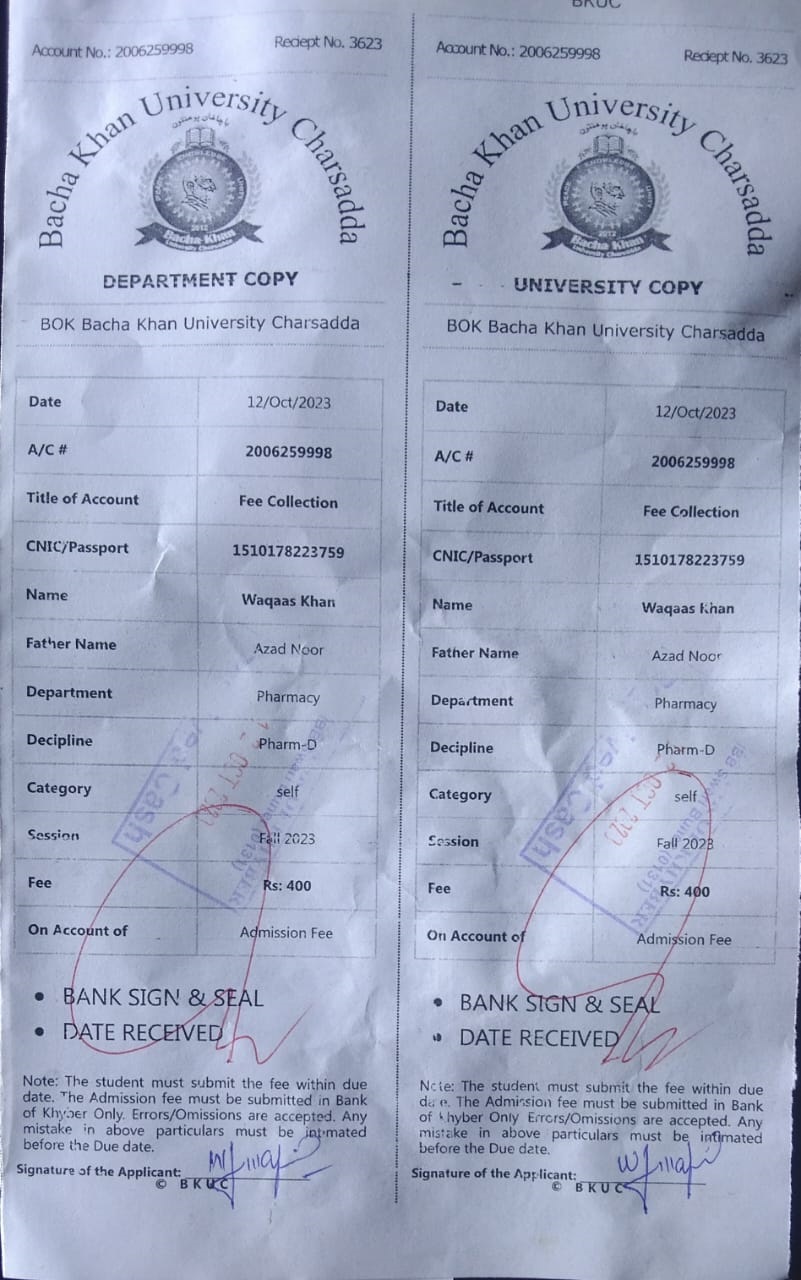 BKUC
Account No.: 2006259998 Reciept No. 3623
Bacha Khan University Charsadda
باچا خان پوهنتون
KNOWLEDGE
2012
Bacha Khan
University Charsadda
DEPARTMENT COPY
BOK Bacha Khan University Charsadda
Date 12/Oct/2023
A/C # 2006259998
Title of Account Fee Collection
CNIC/Passport 1510178223759
Name Waqaas Khan
Father Name Azad Noor
Department Pharmacy
Decipline Pharm-D
Category self
Session Fall 2023
Fee Rs: 400
On Account of Admission Fee
Cash
OCT
• BANK SIGN & SEAL
• DATE RECEIVED
Note: The student must submit the fee within due
date. The Admission fee must be submitted in Bank
of Khyber Only. Errors/Omissions are accepted. Any
mistake in above particulars must be intimated
before the Due date.
Signature of the Applicant:
© BKUC
Account No.: 2006259998 Reciept No. 3623
Bacha Khan University Charsadda
باچا خان پوهنتون
KNOWLEDGE
2012
Bacha Khan
University Charsadda
UNIVERSITY COPY
BOK Bacha Khan University Charsadda
Date 12/Oct/2023
A/C # 2006259998
Title of Account Fee Collection
CNIC/Passport 1510178223759
Name Waqaas Khan
Father Name Azad Noor
Department Pharmacy
Decipline Pharm-D
Category self
Session Fall 2023
Fee Rs: 400
On Account of Admission Fee
Cash
OCT
• BANK SIGN & SEAL
• DATE RECEIVED
Note: The student must submit the fee within due
date. The Admission fee must be submitted in Bank
of Khyber Only Errors/Omissions are accepted. Any
mistake in above particulars must be intimated
before the Due date.
Signature of the Applicant:
© BKUC